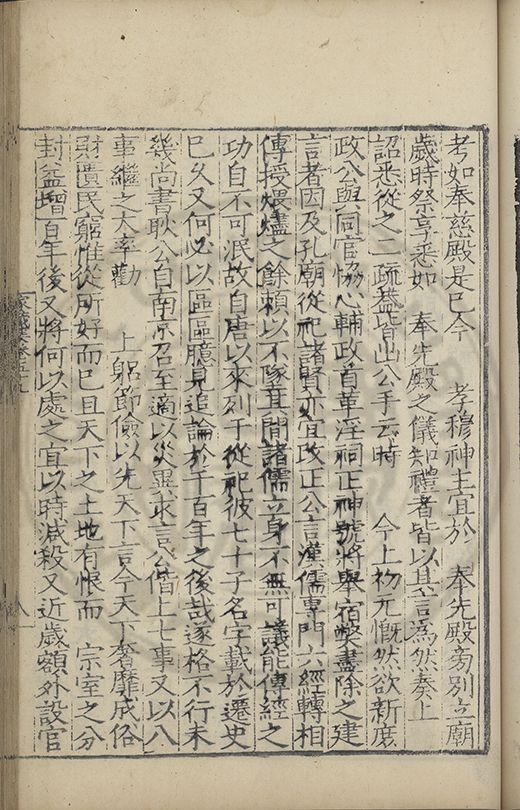 考如奉慈殿是已今　孝穆神主宜於　奉先殿旁別立廟
歲時祭享悉如　奉先殿之儀知禮者皆以其言為然奏上
詔悉從之二疏蓋皆出公手云時　今上初元慨然欲新庶
政公與同官協心輔政首革淫祠正神號將舉宿弊盡除之建
言者因及孔廟從祀諸賢亦宜改正公言漢儒專門六經轉相
傳授煨燼之餘賴以不墜其間諸儒立身不無可議能傳經之
功自不可泯故自唐以來列于從祀彼七十子名字載於遷史
已久又何必以區區臆見追論於千百年之後哉遂格不行未
幾尚書耿公自南京召至適以災異求言公偕上七事又以八
事繼之大率勸　上躬節儉以先天下言今天下奢靡成俗
財匱民窮惟從所好而已且天下之土地有限而　宗室之分
封益增百年後又將何以處之宜以時減殺又近歲額外設官